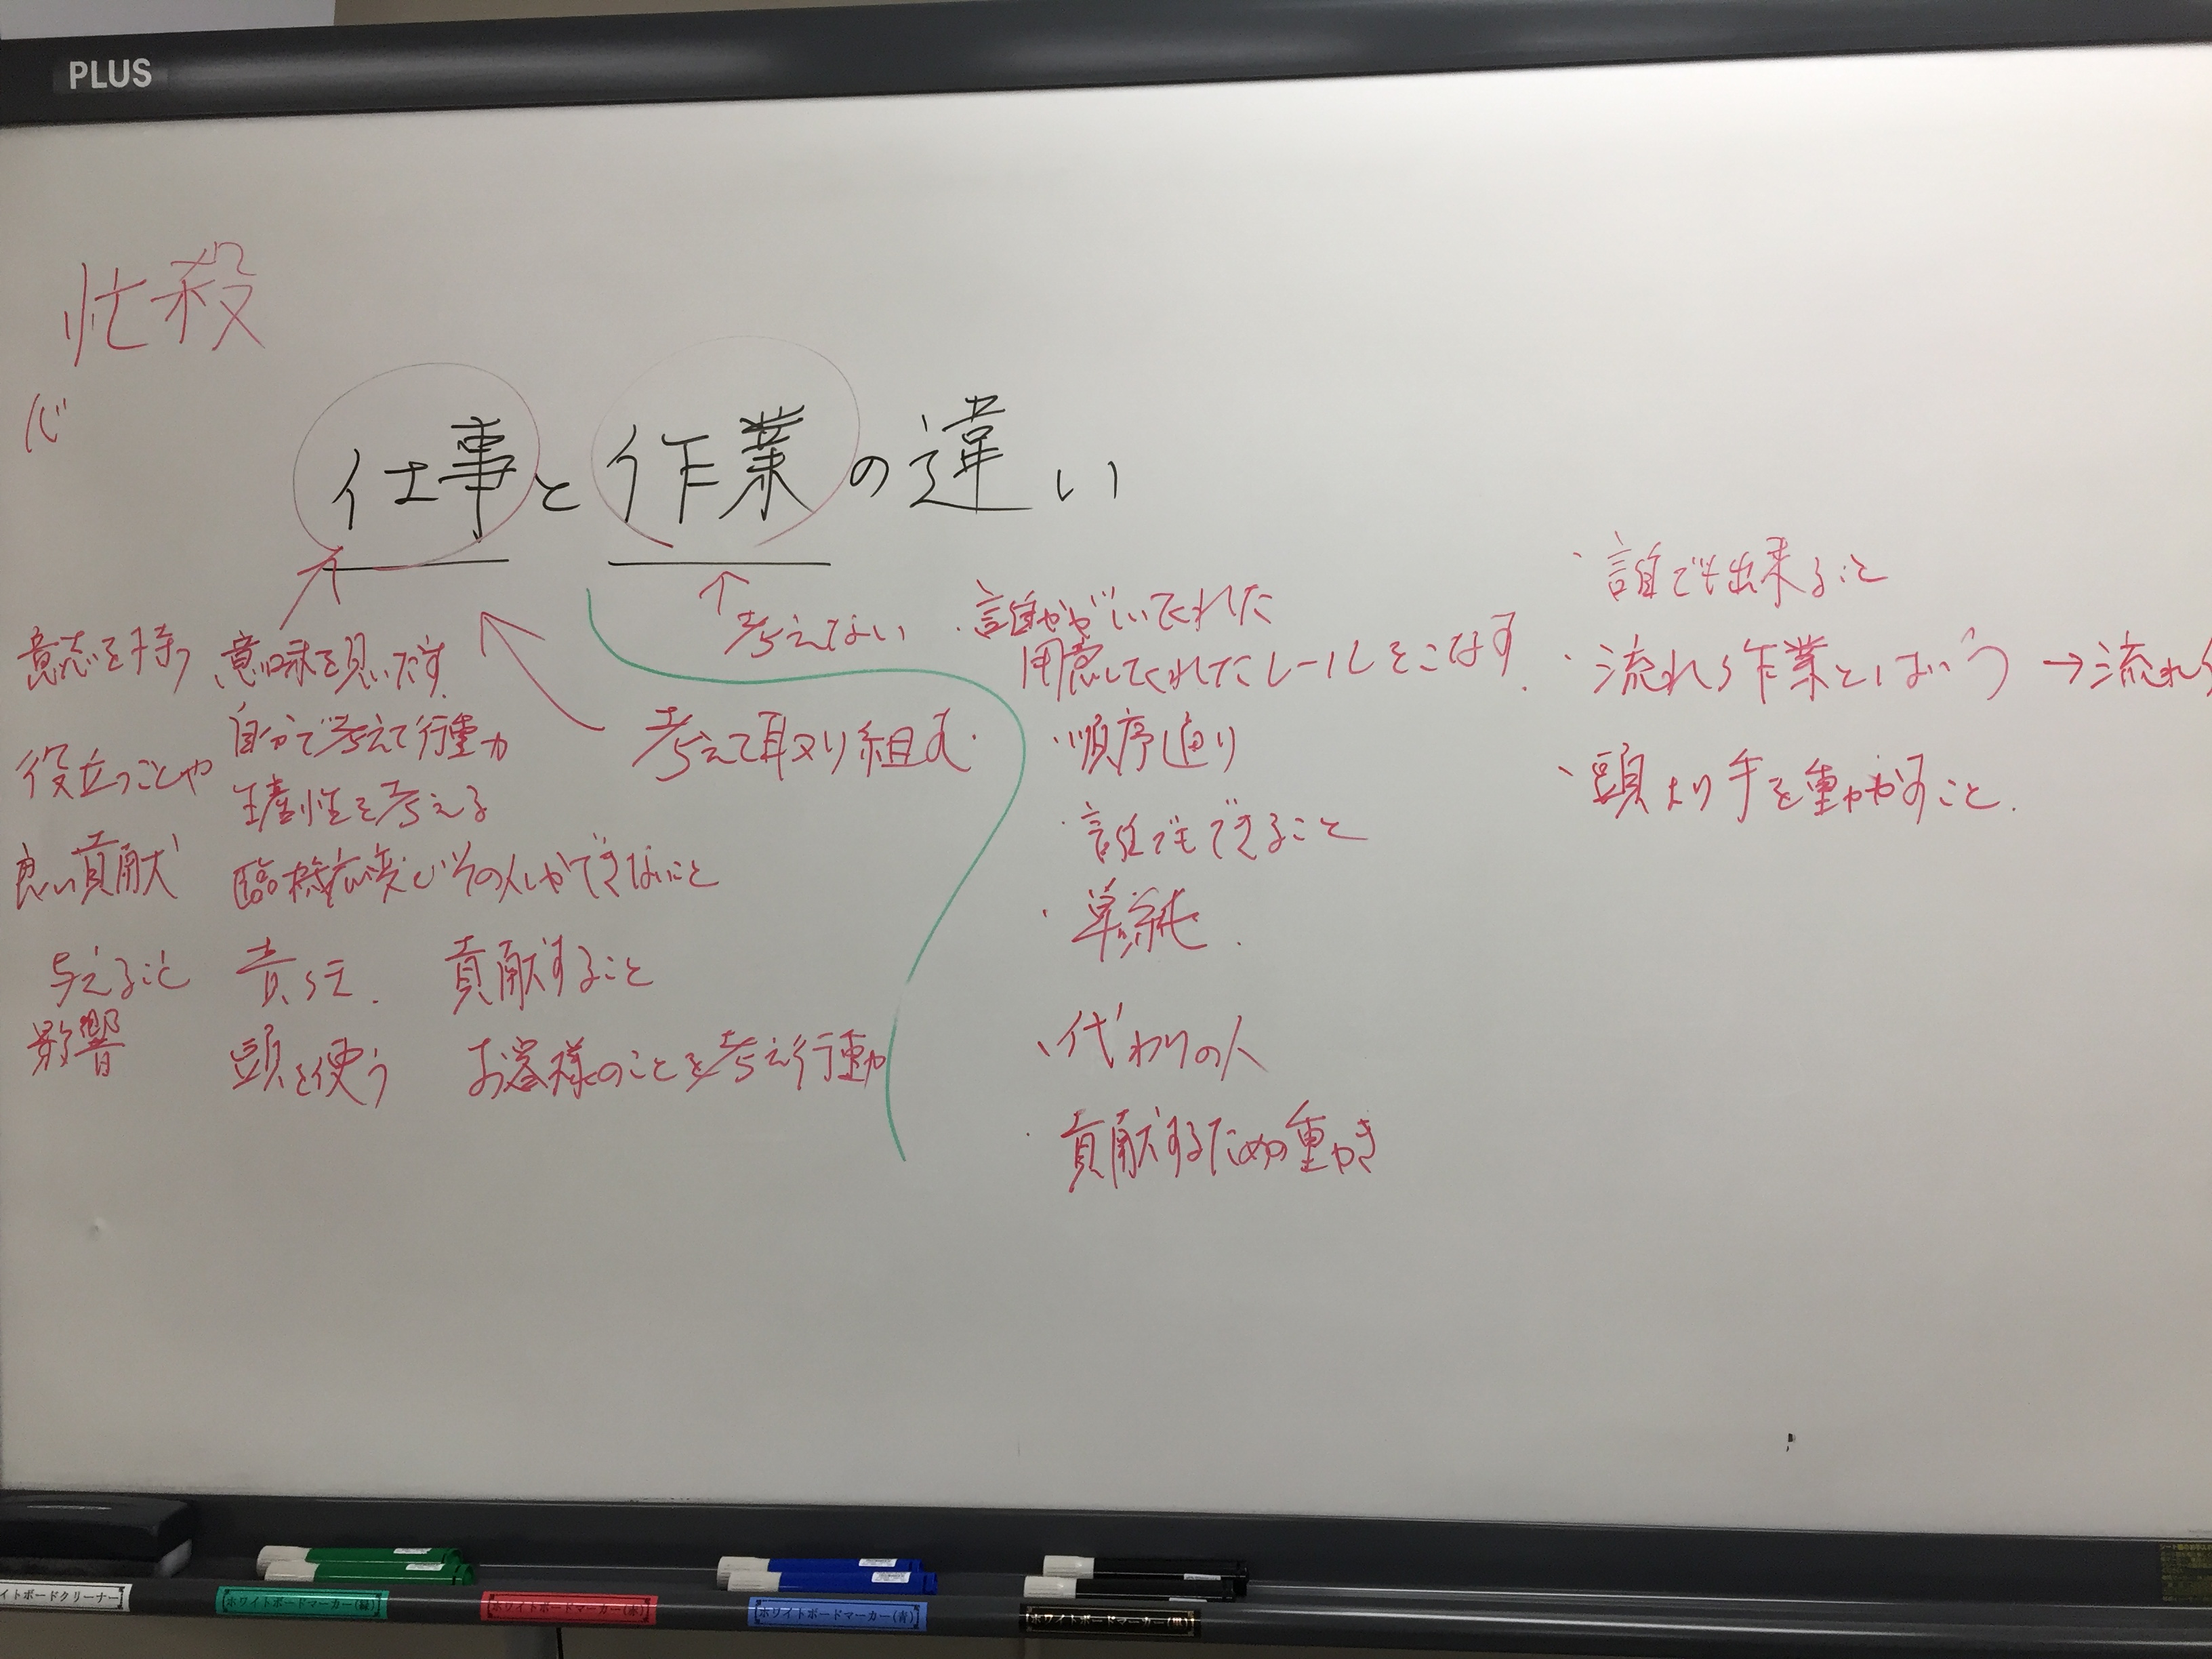 PLUS
忙殺
仕事と作業の違い
意志を持つ
役立つことや
良い貢献
与えること
影響
意味を見いだす
自分で考えて行動
生産性を考える
臨機応変 その人しかできないこと
責任 貢献すること
頭を使う お客様のことを考え行動
考えて取り組む
考えてない
・誰かがしいてくれた
用意してくれたレールをこなす
・順序通り
・誰でもできること
・単純
・代わりの人
・貢献するための動き
・誰でも出来ること
・流れる作業とはいう → 流れ
・頭より手を動かすこと
イトボードクリーナー
ホワイトボードマーカー(緑)
ホワイトボードマーカー(赤)
ホワイトボードマーカー(青)
ホワイトボードマーカー(黒)